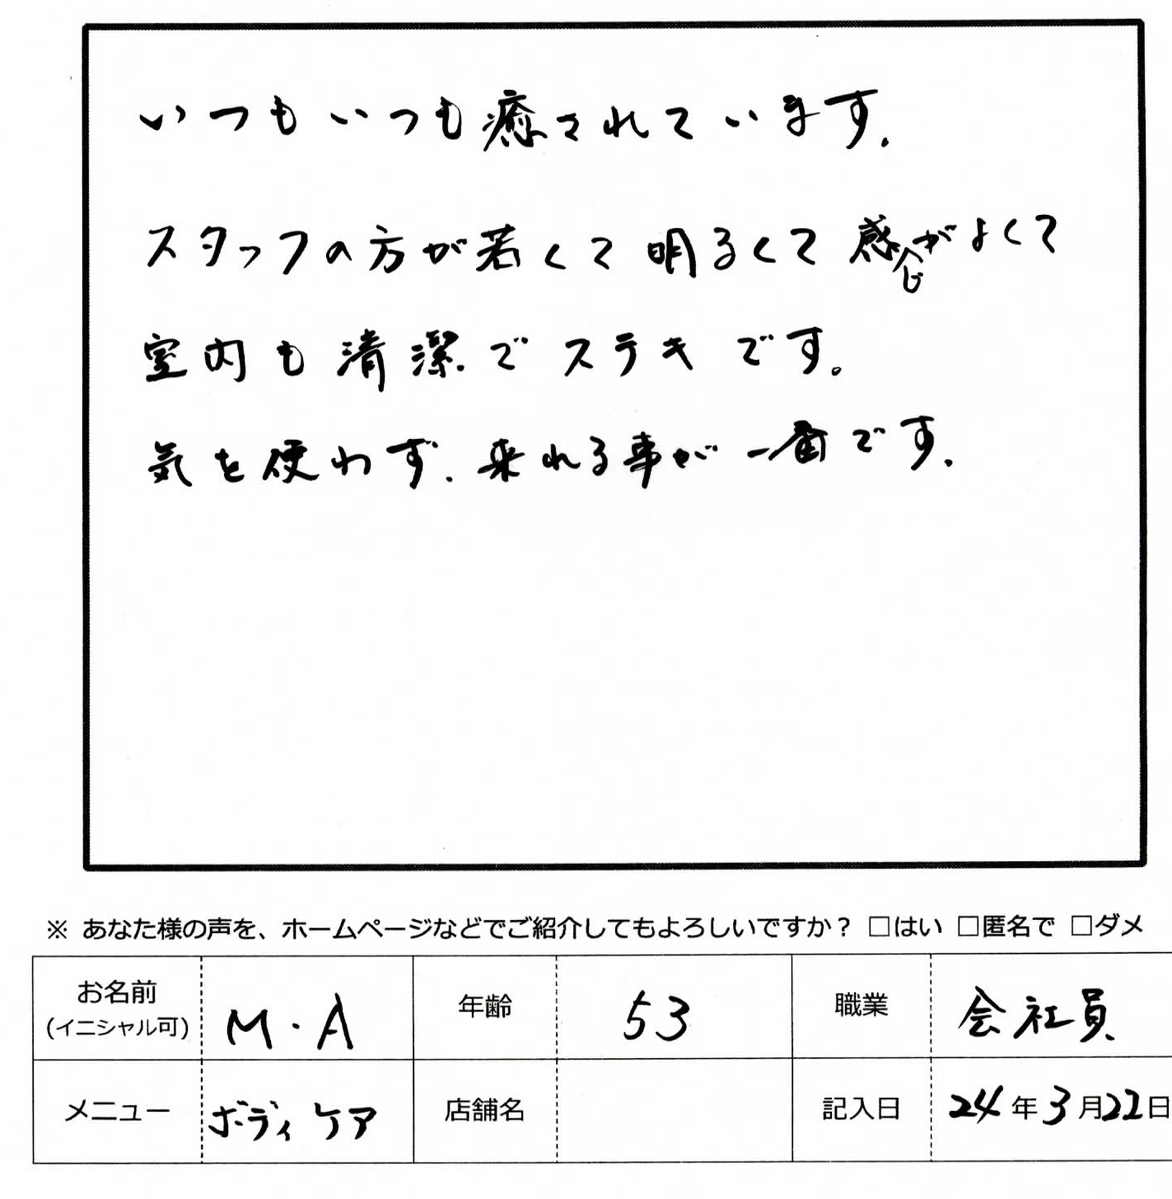 いつもいつも癒されています.
スタッフの方が若くて明るくて感じがよくて
室内も清潔でステキです。
気を使わず.来れる事が一番です.
※ あなた様の声を、ホームページなどでご紹介してもよろしいですか？ □はい □匿名で □ダメ
お名前 (イニシャル可) M・A 年齢 53 職業 会社員
メニュー ボディケア 店舗名 記入日 24年3月22日